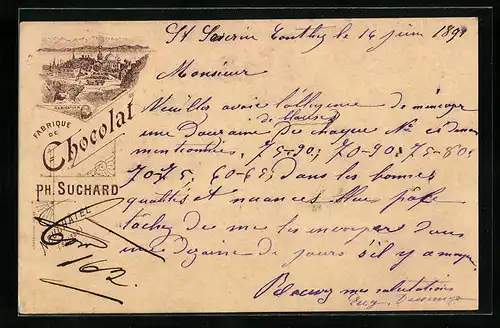 FABRIQUE
DE
Chocolat
PH. SUCHARD
NEUCHATEL
162
St Severin le 16 juin 189
Monsieur
Veuillez avoir l'obligeance de m'envoyer
de blouses
une Douzaine de chaque No ci dessous
mentionnées, 75-90; 70-90; 75-80;
70-75; 60-65; dans les bonnes
qualités et nuances
tâchez de me les envoyer dans
une dizaine de jours s'il y a moyen.
Recevez mes salutations
Eug.